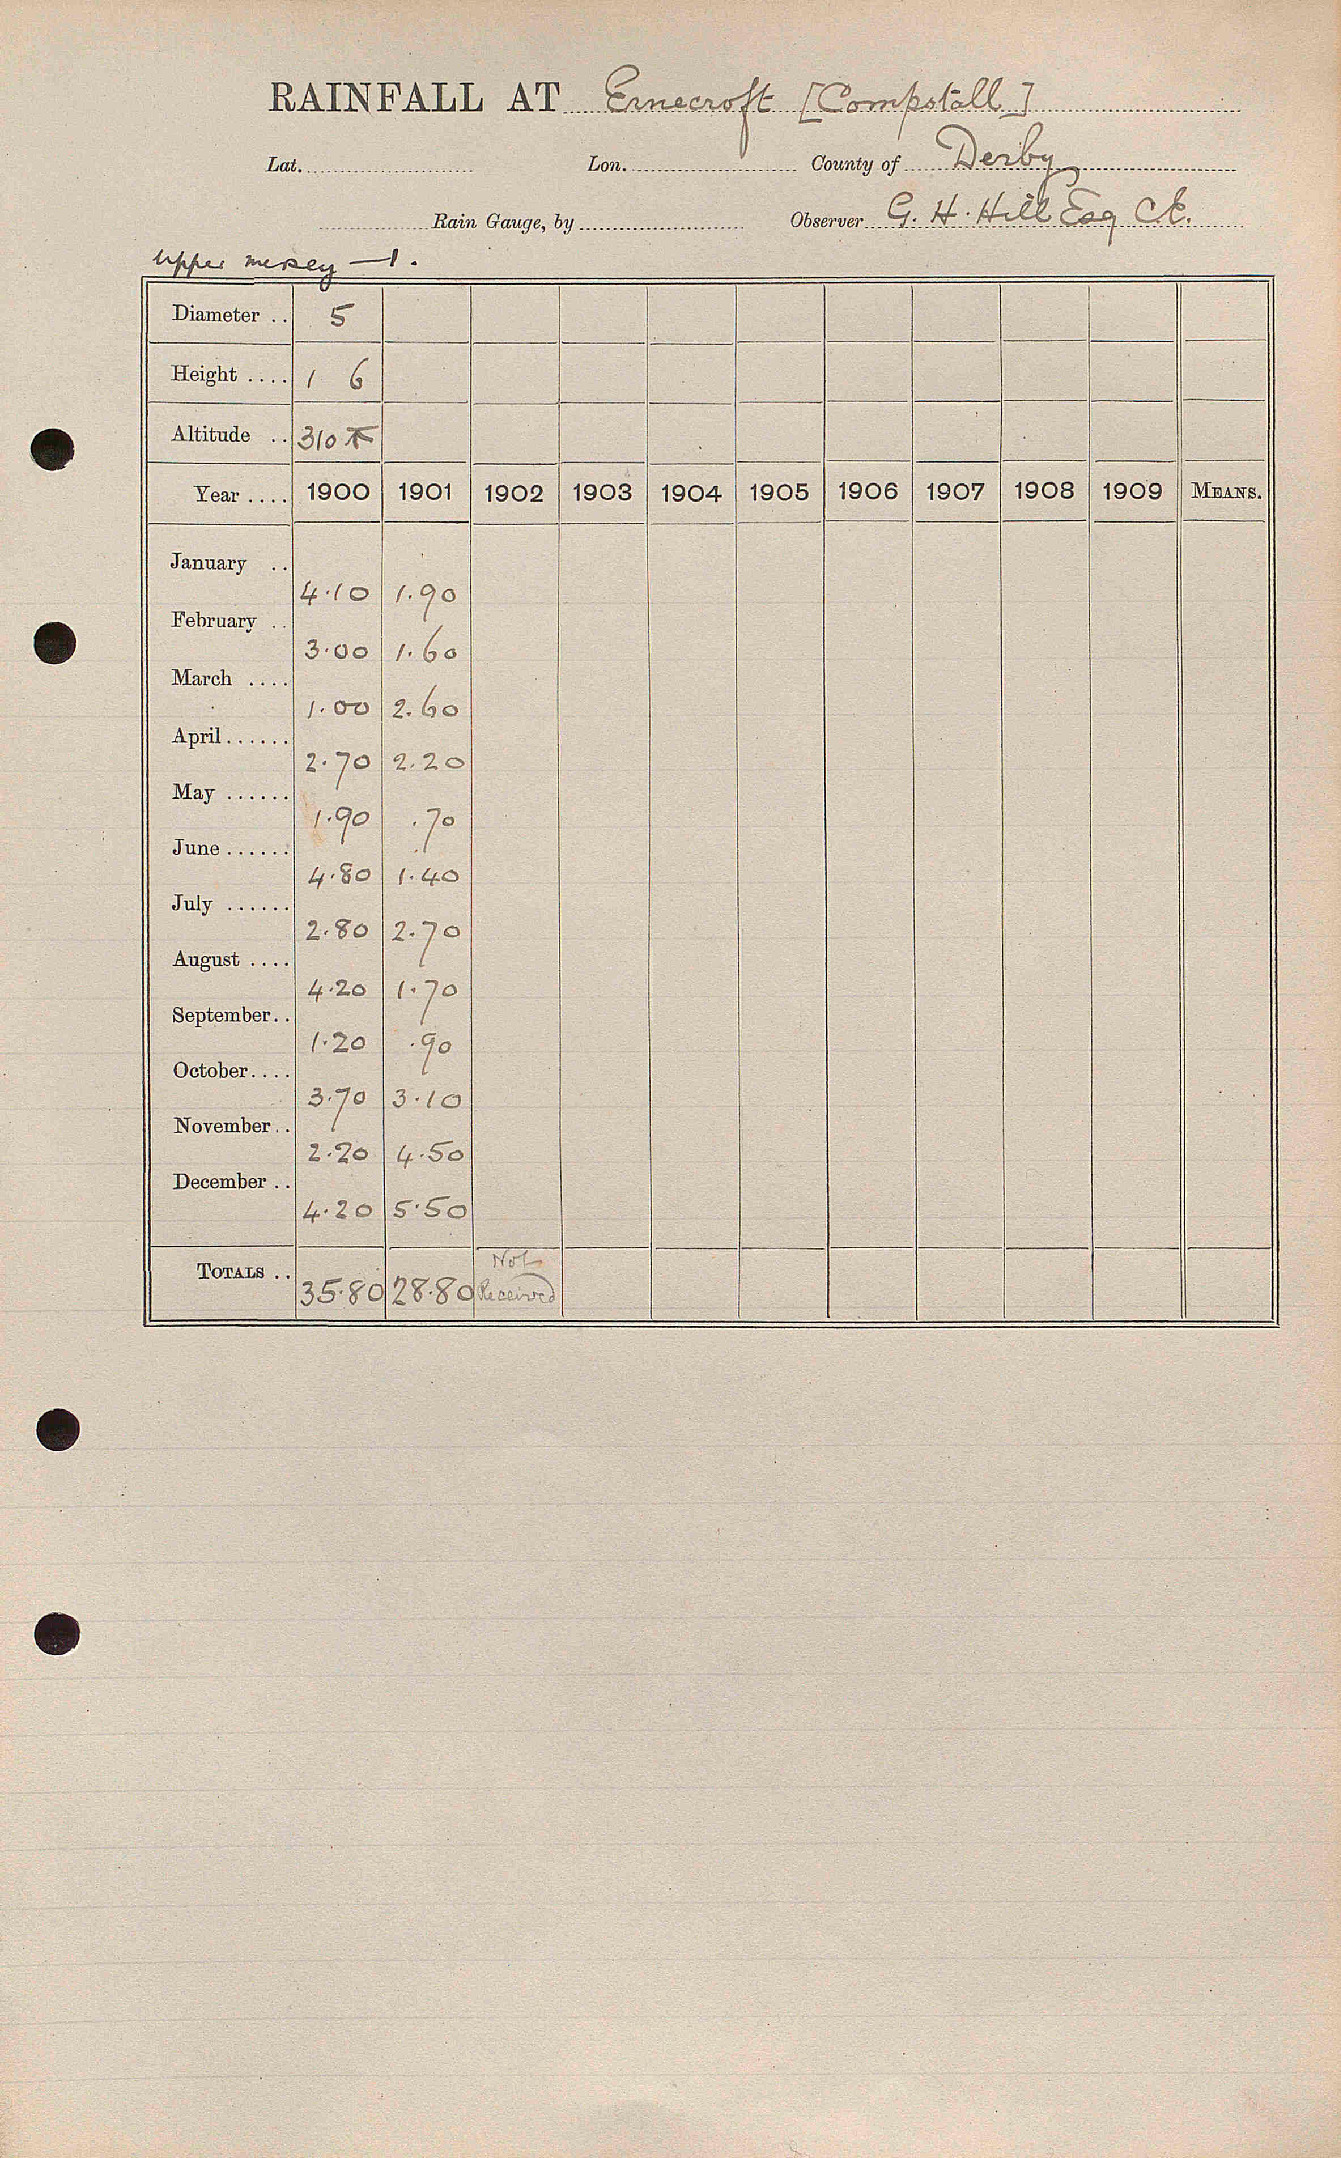 RAINFALL AT Ernecroft [Compstall]
Lat. Lon. County of Derby
Rain Gauge, by Observer G. H. Hill Esq C.E.
Upper Mersey — 1.
Diameter .. 5
Height .... 1 6
Altitude .. 310
Year .... 1900 1901 1902 1903 1904 1905 1906 1907 1908 1909 MEANS.
January .. 4.10 1.90
February .. 3.00 1.60
March .... 1.00 2.60
April...... 2.70 2.20
May ...... 1.90 .70
June ...... 4.80 1.40
July ...... 2.80 2.70
August .... 4.20 1.70
September.. 1.20 .90
October.... 3.70 3.10
November.. 2.20 4.50
December .. 4.20 5.50
TOTALS .. 35.80 28.80 Not Received